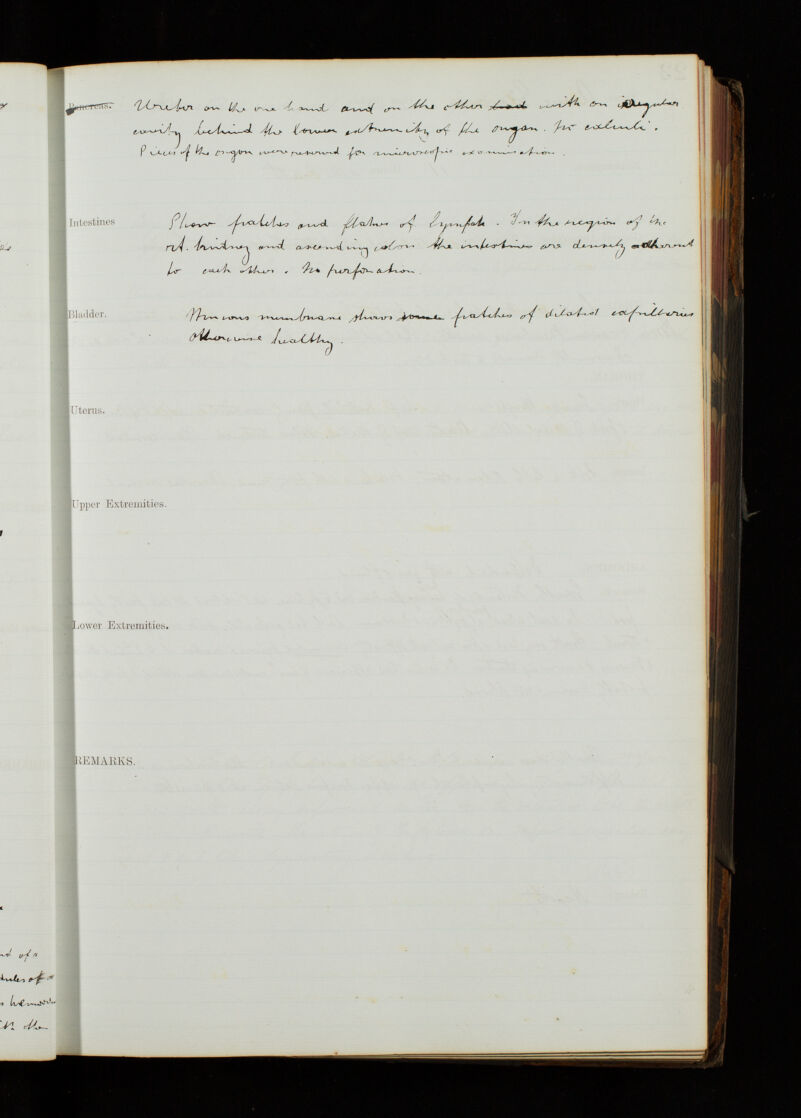 Pancreas. Ureter on the one hand and on the other hand with an irregular
cavity behind the lower extremity of the organ. No calculi.
Pieces of the organ were reserved for microscopic examination.
Intestines Show patches and flakes of lymph. In the region of the
rt. kidney and ascending colon the intestines are densely adherent
to each other. No perforation.
Bladder. Mucous membrane shows some patches of dilated capillaries
otherwise healthy.
Uterus.
Upper Extremities.
Lower Extremities.
REMARKS.